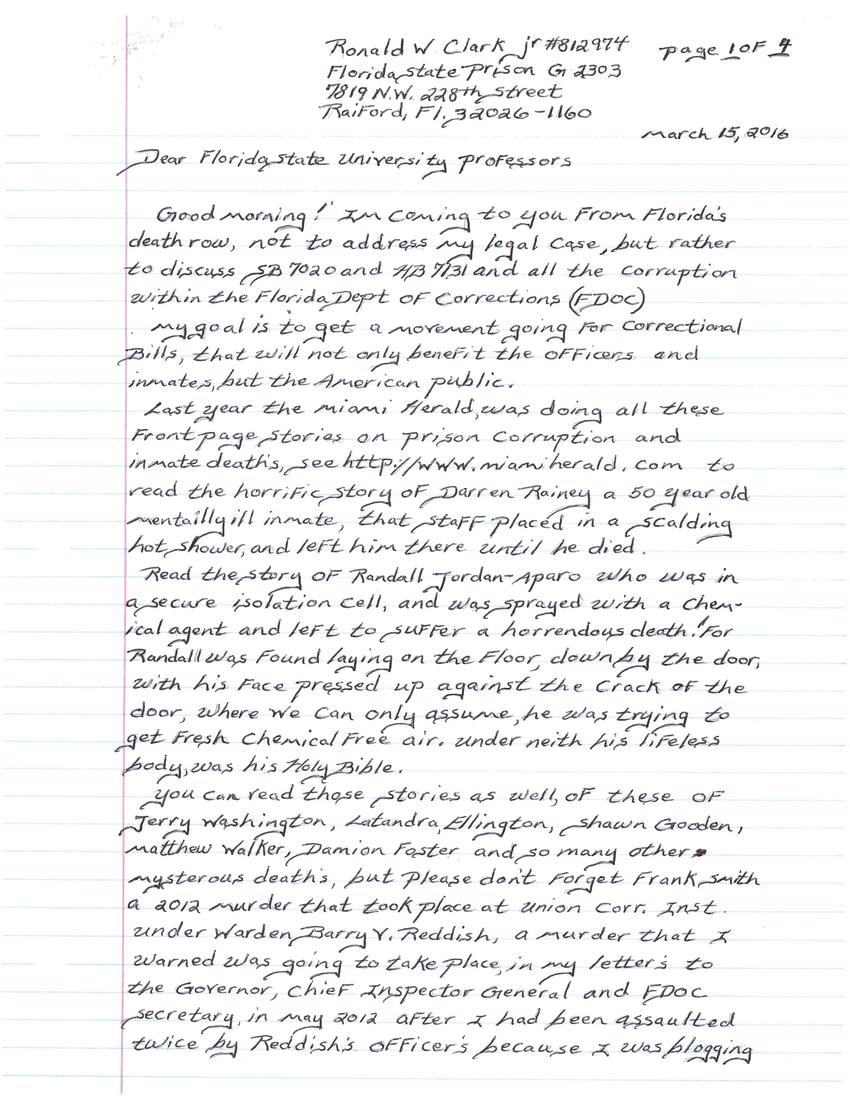 Ronald W. Clark jr #812974 page 1 OF 4
Florida state Prison G 2303
7819 N.W. 228th street
Raiford, Fl. 32026-1160
march 15, 2016
Dear Florida state University professors
Good morning! Im coming to you From Florida's
death row, not to address my legal case, but rather
to discuss SB 7020 and HB 7131 and all the corruption
within the Florida Dept of Corrections (FDOC)
my goal is to get a movement going For Correctional
Bills, that will not only benefit the officers and
inmates, but the American public.
Last year the miami Herald, was doing all these
Front page stories on prison corruption and
inmate death's, see http://www.miamiherald.com to
read the horrific story of Darren Rainey a 50 year old
mentailly ill inmate, that staff placed in a scalding
hot shower, and left him there until he died.
Read the story of Randall Jordan-Aparo who was in
a secure isolation cell, and was sprayed with a chem-
ical agent and left to suffer a horrendous death! For
Randall was Found laying on the Floor, down by the door,
with his Face pressed up against the crack of the
door, where we can only assume, he was trying to
get Fresh Chemical Free air. under neith his lifeless
body, was his Holy Bible.
you can read those stories as well, of these of
Jerry Washington, Latandra Ellington, Shawn Gooden,
matthew Walker, Damion Foster and so many other
mysterous death's, but please don't Forget Frank smith
a 2012 murder that took place at union Corr. Inst.
under Warden Barry V. Reddish, a murder that I
warned was going to take place, in my letter's to
the Governor, Chief Inspector General and FDOC
secretary, in may 2012 after I had been assaulted
twice by Reddish's officer's because I was blogging